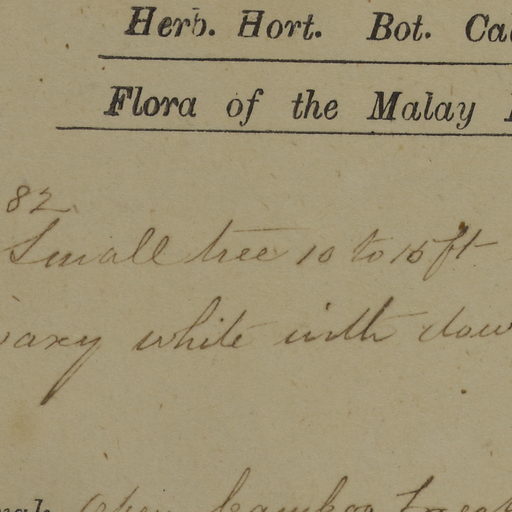 Herb. Hort. Bot.
Flora of the Malay
82
Small tree 10 to 15 ft
white with
open bamboo